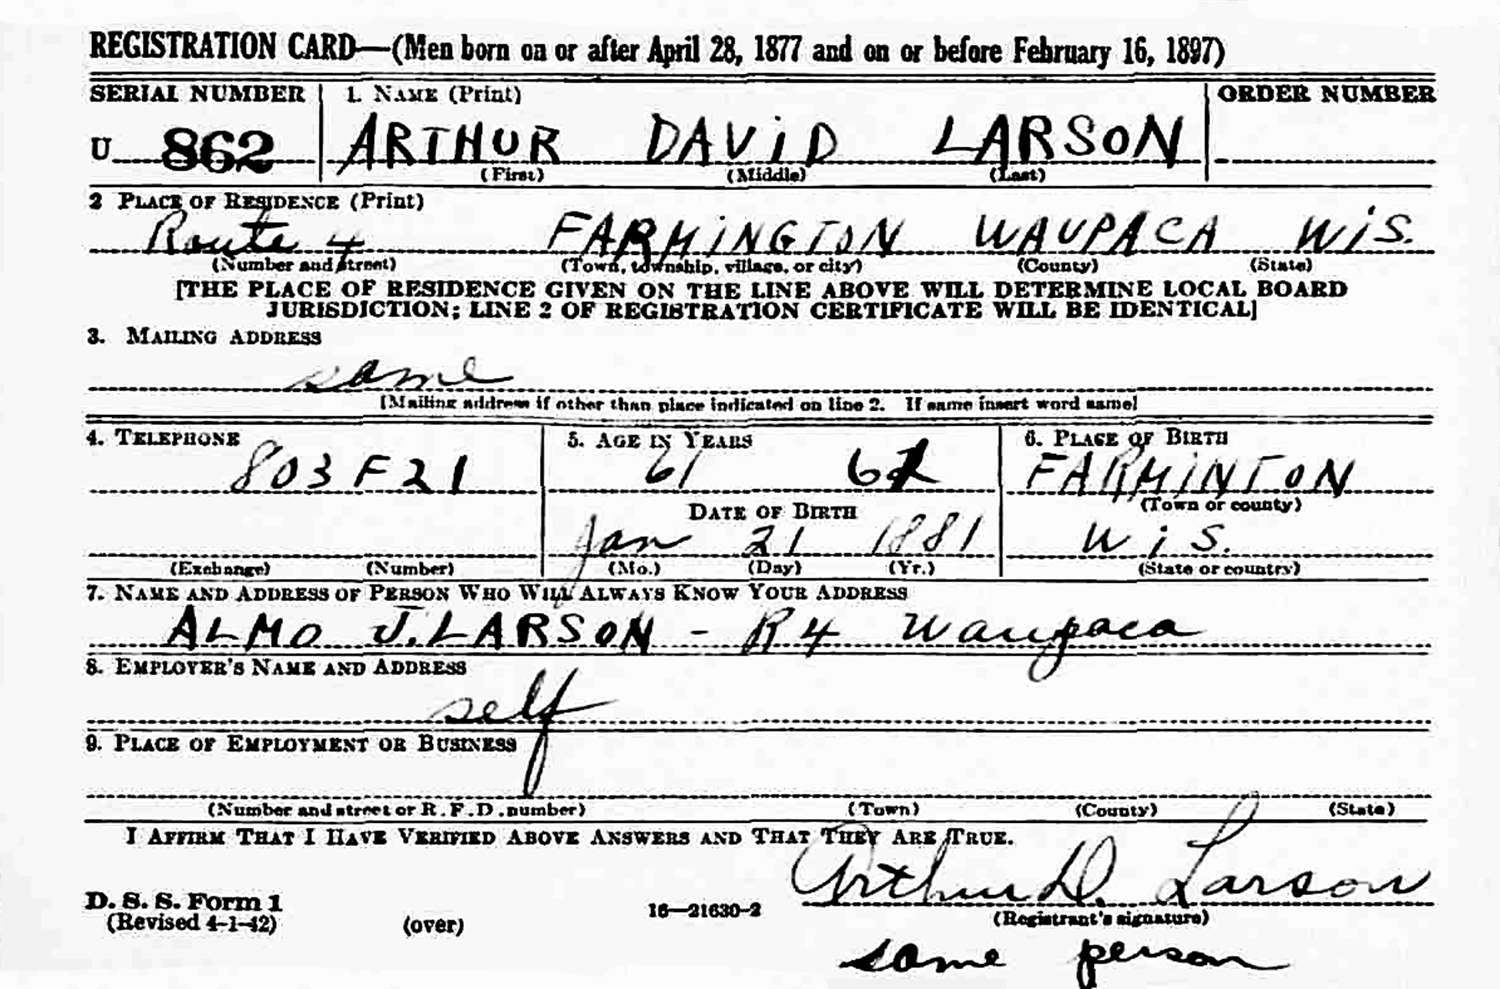 REGISTRATION CARD—(Men born on or after April 28, 1877 and on or before February 16, 1897)
SERIAL NUMBER 1. NAME (Print) ORDER NUMBER
U 862 ARTHUR DAVID LARSON
(First) (Middle) (Last)
2 PLACE OF RESIDENCE (Print)
Route 4 FARMINGTON WAUPACA WIS.
(Number and street) (Town, township, village, or city) (County) (State)
[THE PLACE OF RESIDENCE GIVEN ON THE LINE ABOVE WILL DETERMINE LOCAL BOARD
JURISDICTION; LINE 2 OF REGISTRATION CERTIFICATE WILL BE IDENTICAL]
3. MAILING ADDRESS
same
[Mailing address if other than place indicated on line 2. If same insert word same]
4. TELEPHONE 5. AGE IN YEARS 6. PLACE OF BIRTH
803 F 21 61 FARMINTON
DATE OF BIRTH (Town or county)
Jan 21 1881 Wis.
(Exchange) (Number) (Mo.) (Day) (Yr.) (State or country)
7. NAME AND ADDRESS OF PERSON WHO WILL ALWAYS KNOW YOUR ADDRESS
ALMO J. LARSON - R4 Waupaca
8. EMPLOYER'S NAME AND ADDRESS
self
9. PLACE OF EMPLOYMENT OR BUSINESS
(Number and street or R. F. D. number) (Town) (County) (State)
I AFFIRM THAT I HAVE VERIFIED ABOVE ANSWERS AND THAT THEY ARE TRUE.
Arthur D. Larson
D. S. S. Form 1 16—21630-2
(Revised 4-1-42) (over) (Registrant's signature)
same person